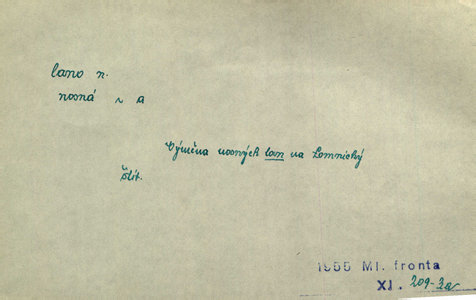 lano n.
nosná ~ a
Výměna nosných lan na Lomnický
štít.
1955 Ml. fronta
XI. 209-3a